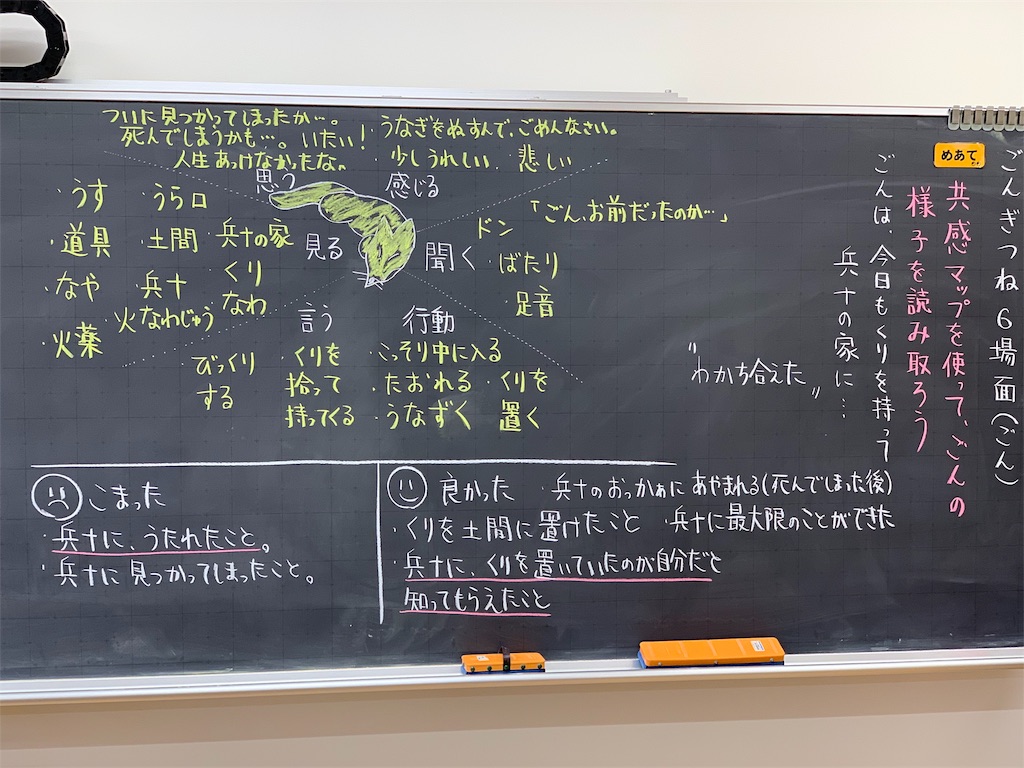 ごんぎつね６場面（ごん）
めあて
共感マップを使って、ごんの
様子を読み取ろう
ごんは、今日もくりを持って
兵十の家に…
"わかち合えた"
ついに見つかってしまったか…。
死んでしまうかも…。いたい！
人生あっけなかったな。
・うなぎをぬすんで、ごめんなさい。
・少しうれしい 悲しい
思う
感じる
見る
聞く
言う
行動
・うす うら口
・道具 土間 兵十の家
・なや 兵十 くり
なわ
・火薬 火なわじゅう
「ごん、お前だったのか…」
ドン
・ばたり
足音
びっくり
する
くりを
拾って
持ってくる
・こっそり中に入る
・たおれる
・うなずく
・くりを
置く
こまった
・兵十に、うたれたこと。
・兵十に見つかってしまったこと。
良かった
・兵十のおっかぁにあやまれる(死んでしまった後)
・くりを土間に置けたこと
・兵十に最大限のことができた
・兵十に、くりを置いていたのが自分だと
知ってもらえたこと